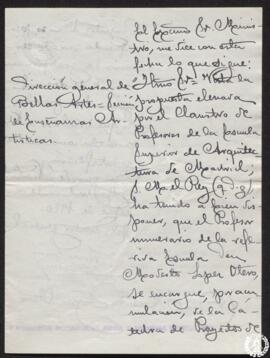 El Excmo Sr. Minis-
tro, me dice con esta
fecha lo que sigue:
Dirección general de
Bellas Artes=
de Enseñanzas Ar-
tísticas.
"Ilmo Sr= Vista la
propuesta elevada
por el Claustro de
Profesores de la Escuela
Superior de Arquitec-
tura de Madrid,
S. M. el Rey (q. D. g.)
ha tenido a bien dis-
poner, que el Profesor
numerario de la refe-
rida Escuela Don
Modesto Lopez Otero,
se encargue, por acu-
mulación, de la Cá-
tedra de Proyectos de